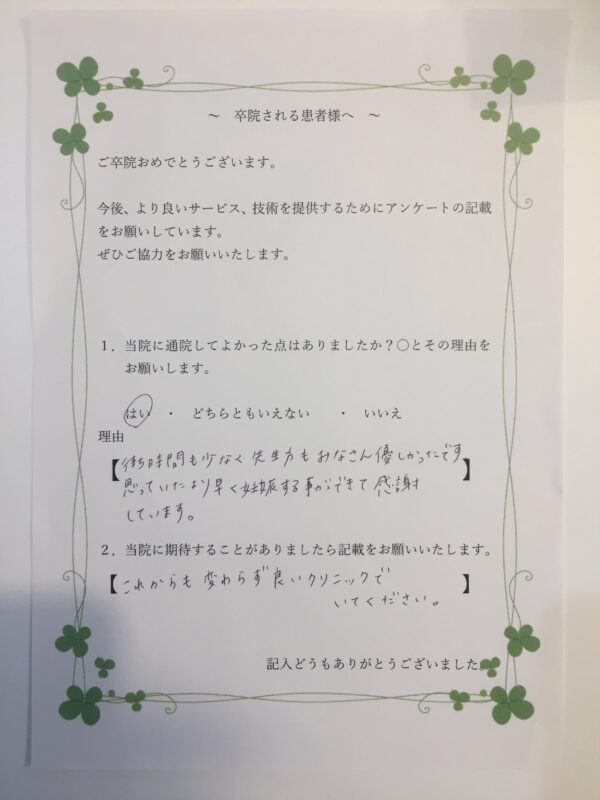 ～　卒院される患者様へ　～
ご卒院おめでとうございます。
今後、より良いサービス、技術を提供するためにアンケートの記載
をお願いしています。
ぜひご協力をお願いいたします。
１．当院に通院してよかった点はありましたか？○とその理由を
お願いします。
はい　・　どちらともいえない　　・　いいえ
理由
【待ち時間も少なく先生方もみなさん優しかったです】
思っていたより早く妊娠する事ができて感謝
しています。
２．当院に期待することがありましたら記載をお願いいたします。
【これからも変わらず良いクリニックで】
いてください。
記入どうもありがとうございました。